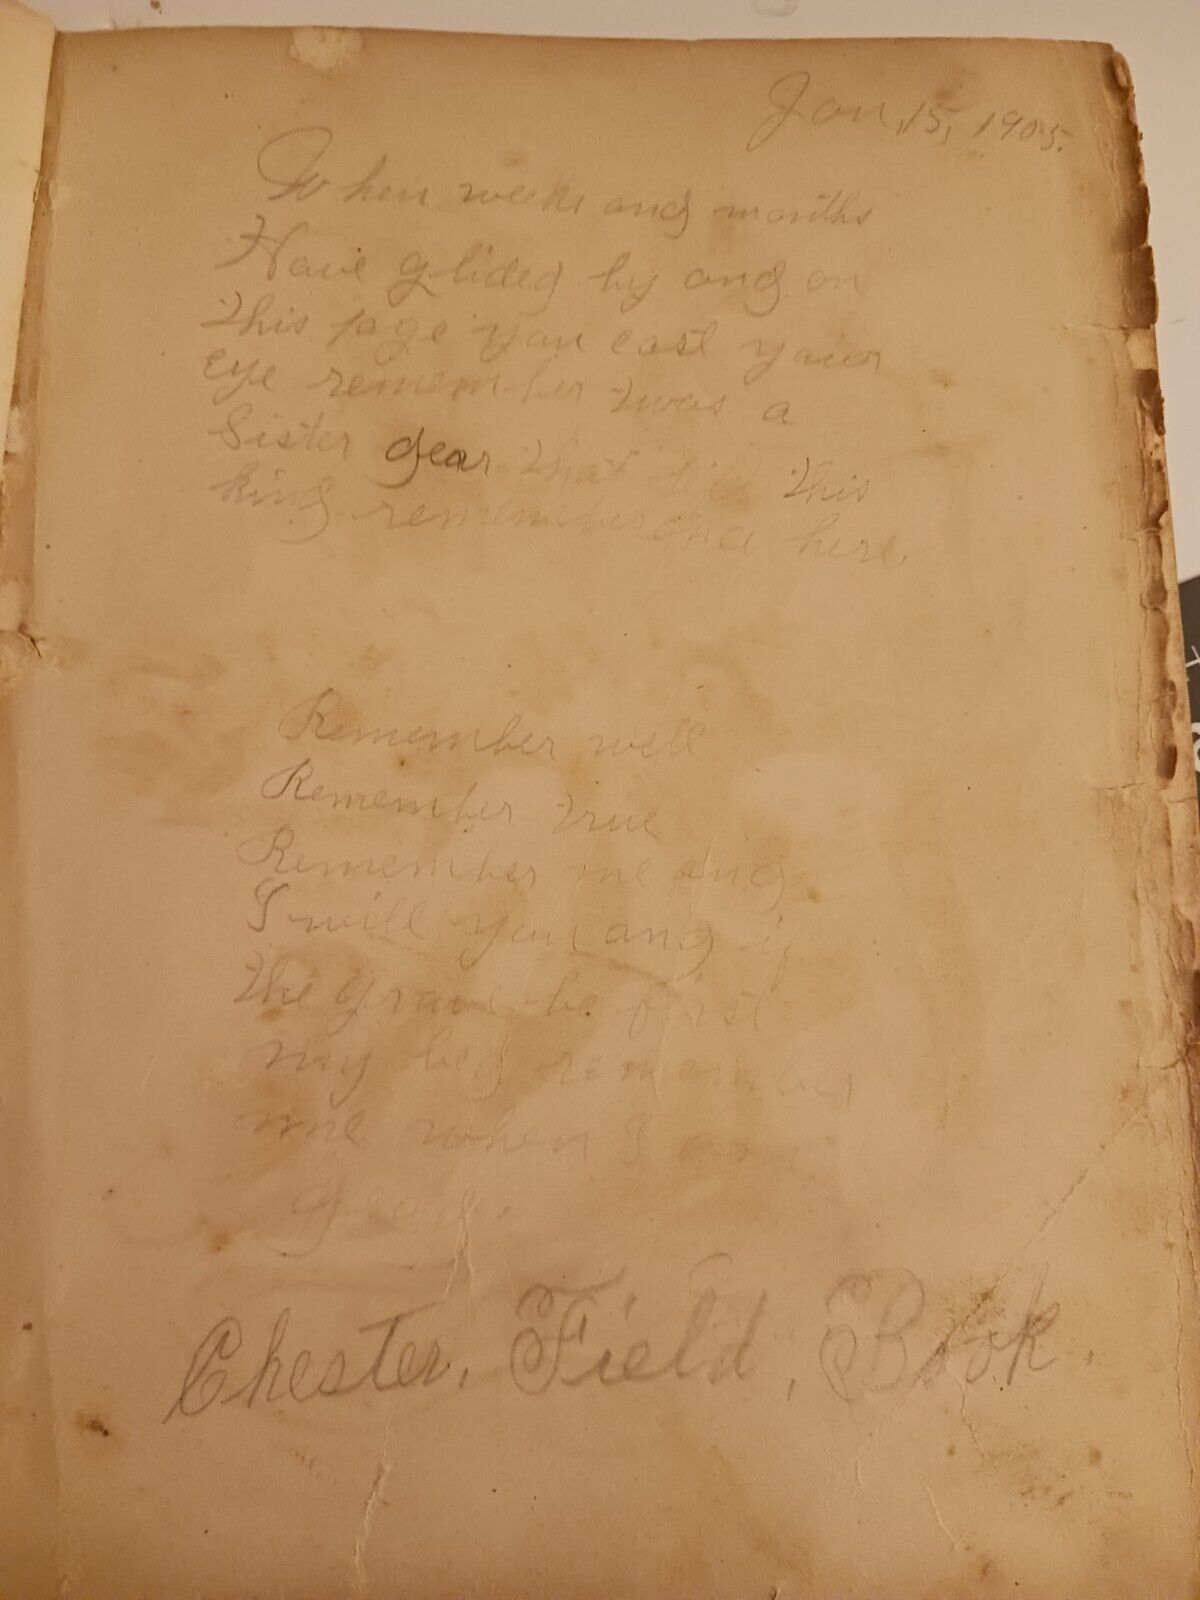 Jan, 15, 1905.
When weeks and months
Have glided by and on
this page you cast your
eye remember twas a
Sister dear that this
kind rememberance here.
Remember well
Remember true
Remember me and
I will you and if
the grave be first
my bed remember
me when I am
dead.
Chester, Field, Book.